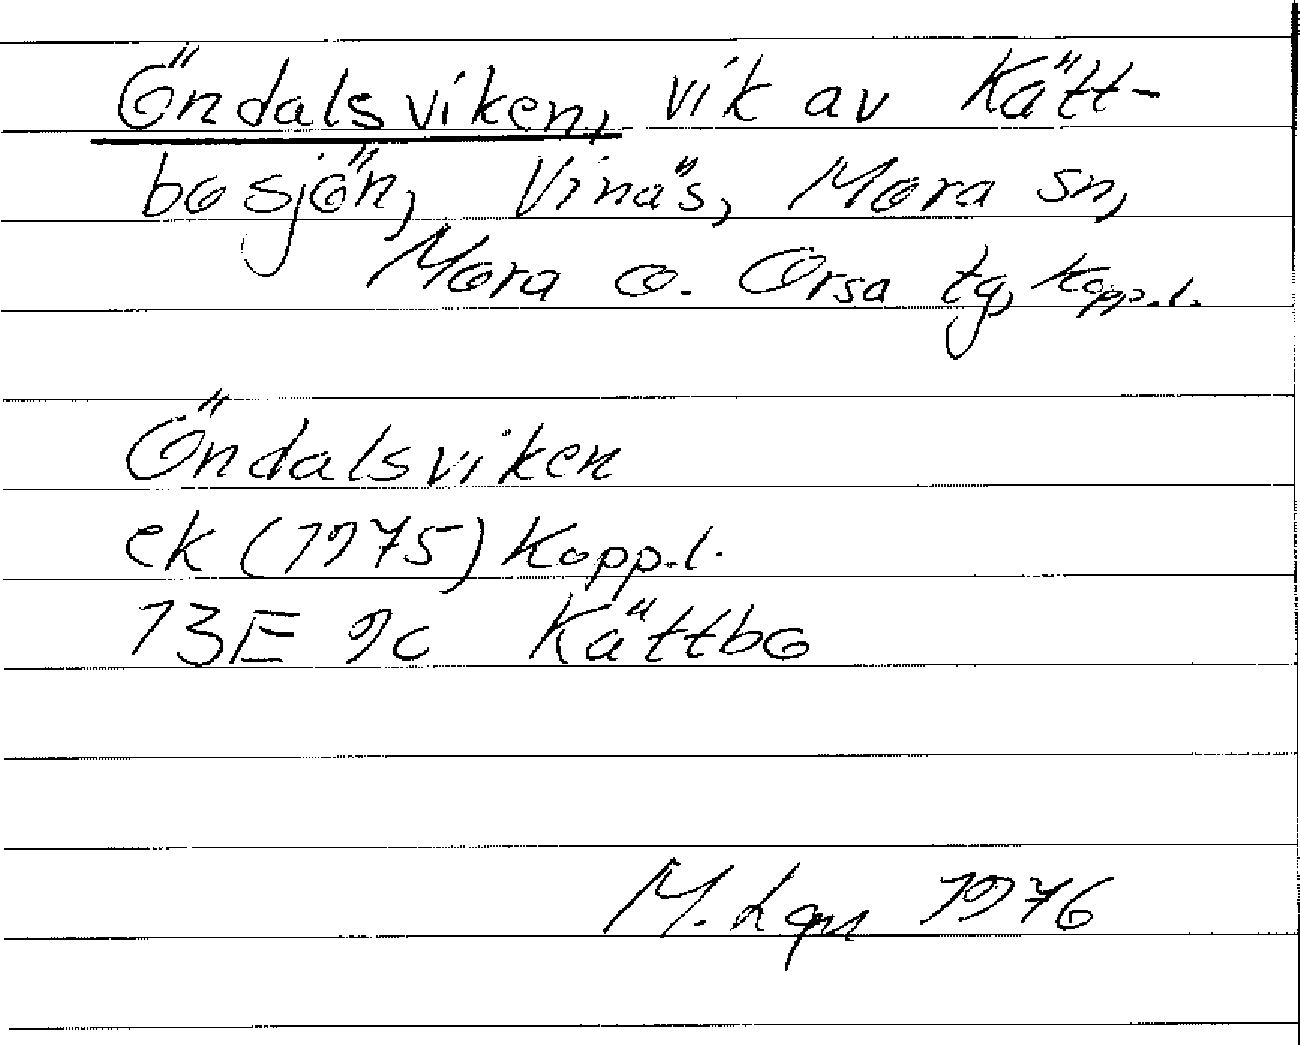 Öndalsviken, vik av Kätt-
bosjön, Vinäs, Mora sn,
Mora o. Orsa tg, Kopp.l.
Öndalsviken
ek (1975) Kopp.l.
13E 9c Kättbo
M. 1976